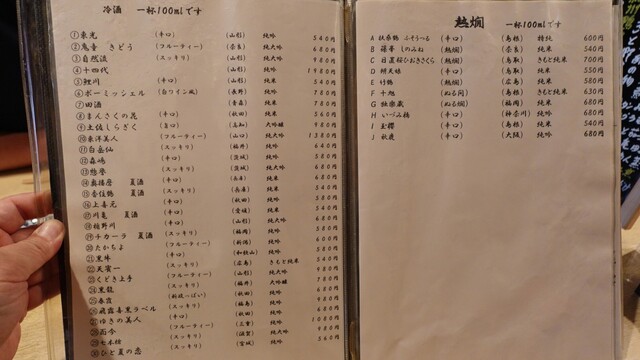 冷酒 一杯100mlです
①東光 (辛口) (山形) 純吟 540円
②鬼音 きどう (フルーティー) (奈良) 純大吟 680円
③自然淡 (スッキリ) (山形) 純吟 980円
④十四代 (山形) 純吟 1980円
⑤鯉川 (辛口) (山形) 純米 540円
⑥ボーミッシェル (白ワイン風) (長野) 純吟 780円
⑦田酒 (青森) 純米 780円
⑧まんさくの花 (辛口) (秋田) 純米 560円
⑨土佐しらぎく (旨口) (高知) 大吟醸 980円
⑩東洋美人 (フルーティー) (山口) 純大吟 1380円
⑪白岳仙 (スッキリ) (福井) 純吟 640円
⑫森嶋 (辛口) (茨城) 純吟 580円
⑬惣誉 (スッキリ) 純大吟 680円
⑭奥播磨 夏酒 (辛口) (兵庫) 純吟
⑮香住鶴 夏酒 (スッキリ) (兵庫) 純米 540円
⑯上喜元 (辛口) 純吟
⑰川亀 夏酒 (辛口) (愛媛) 純米 540円
⑱楯野川 (スッキリ) (山形) 純大吟 680円
⑲チカーラ 夏酒 (スッキリ) (福岡) 純吟 580円
⑳たかちよ (フルーティー) (新潟) 純吟
㉑黒牛 (辛口) (和歌山) 純吟
㉒天寶一 (スッキリ) (広島) きもと純米 540円
㉓くどき上手 (フルーティー) (山形) 純大吟
㉔黒龍 (スッキリ) (福井) 大吟醸
㉕春霞 (スッキリ) 純吟
㉖飛露喜黒ラベル (スッキリ) (福島) 純吟
㉗ゆきの美人 (辛口) (秋田) 純吟
㉘而今 (フルーティー) (三重) 純吟 1080円
㉙七本槍 (スッキリ) (滋賀) 純大吟 980円
㉚ひと夏の恋 (スッキリ) (宮城) 純吟 540円
熱燗 一杯100mlです
A 扶桑鶴 ふそうつる (辛口) (島根) 特純 600円
B 篠峯 しのみね (熱燗) (奈良) 純米 540円
C 日置桜ひおきざくら (熱燗) (鳥取) きもと純米 700円
D 辨天娘 (辛口) (鳥取) 純米 550円
E 竹鶴 (熱燗) (広島) 純米 580円
F 十旭 (ぬる間) (島根) きもと純米 630円
G 独楽蔵 (ぬる燗) (福岡) 純米 680円
H いづみ橋 (辛口) (神奈川) 純吟 680円
I 玉櫻 (辛口) (島根) 純米 540円
J 秋鹿 (辛口) (大阪) 純吟 680円